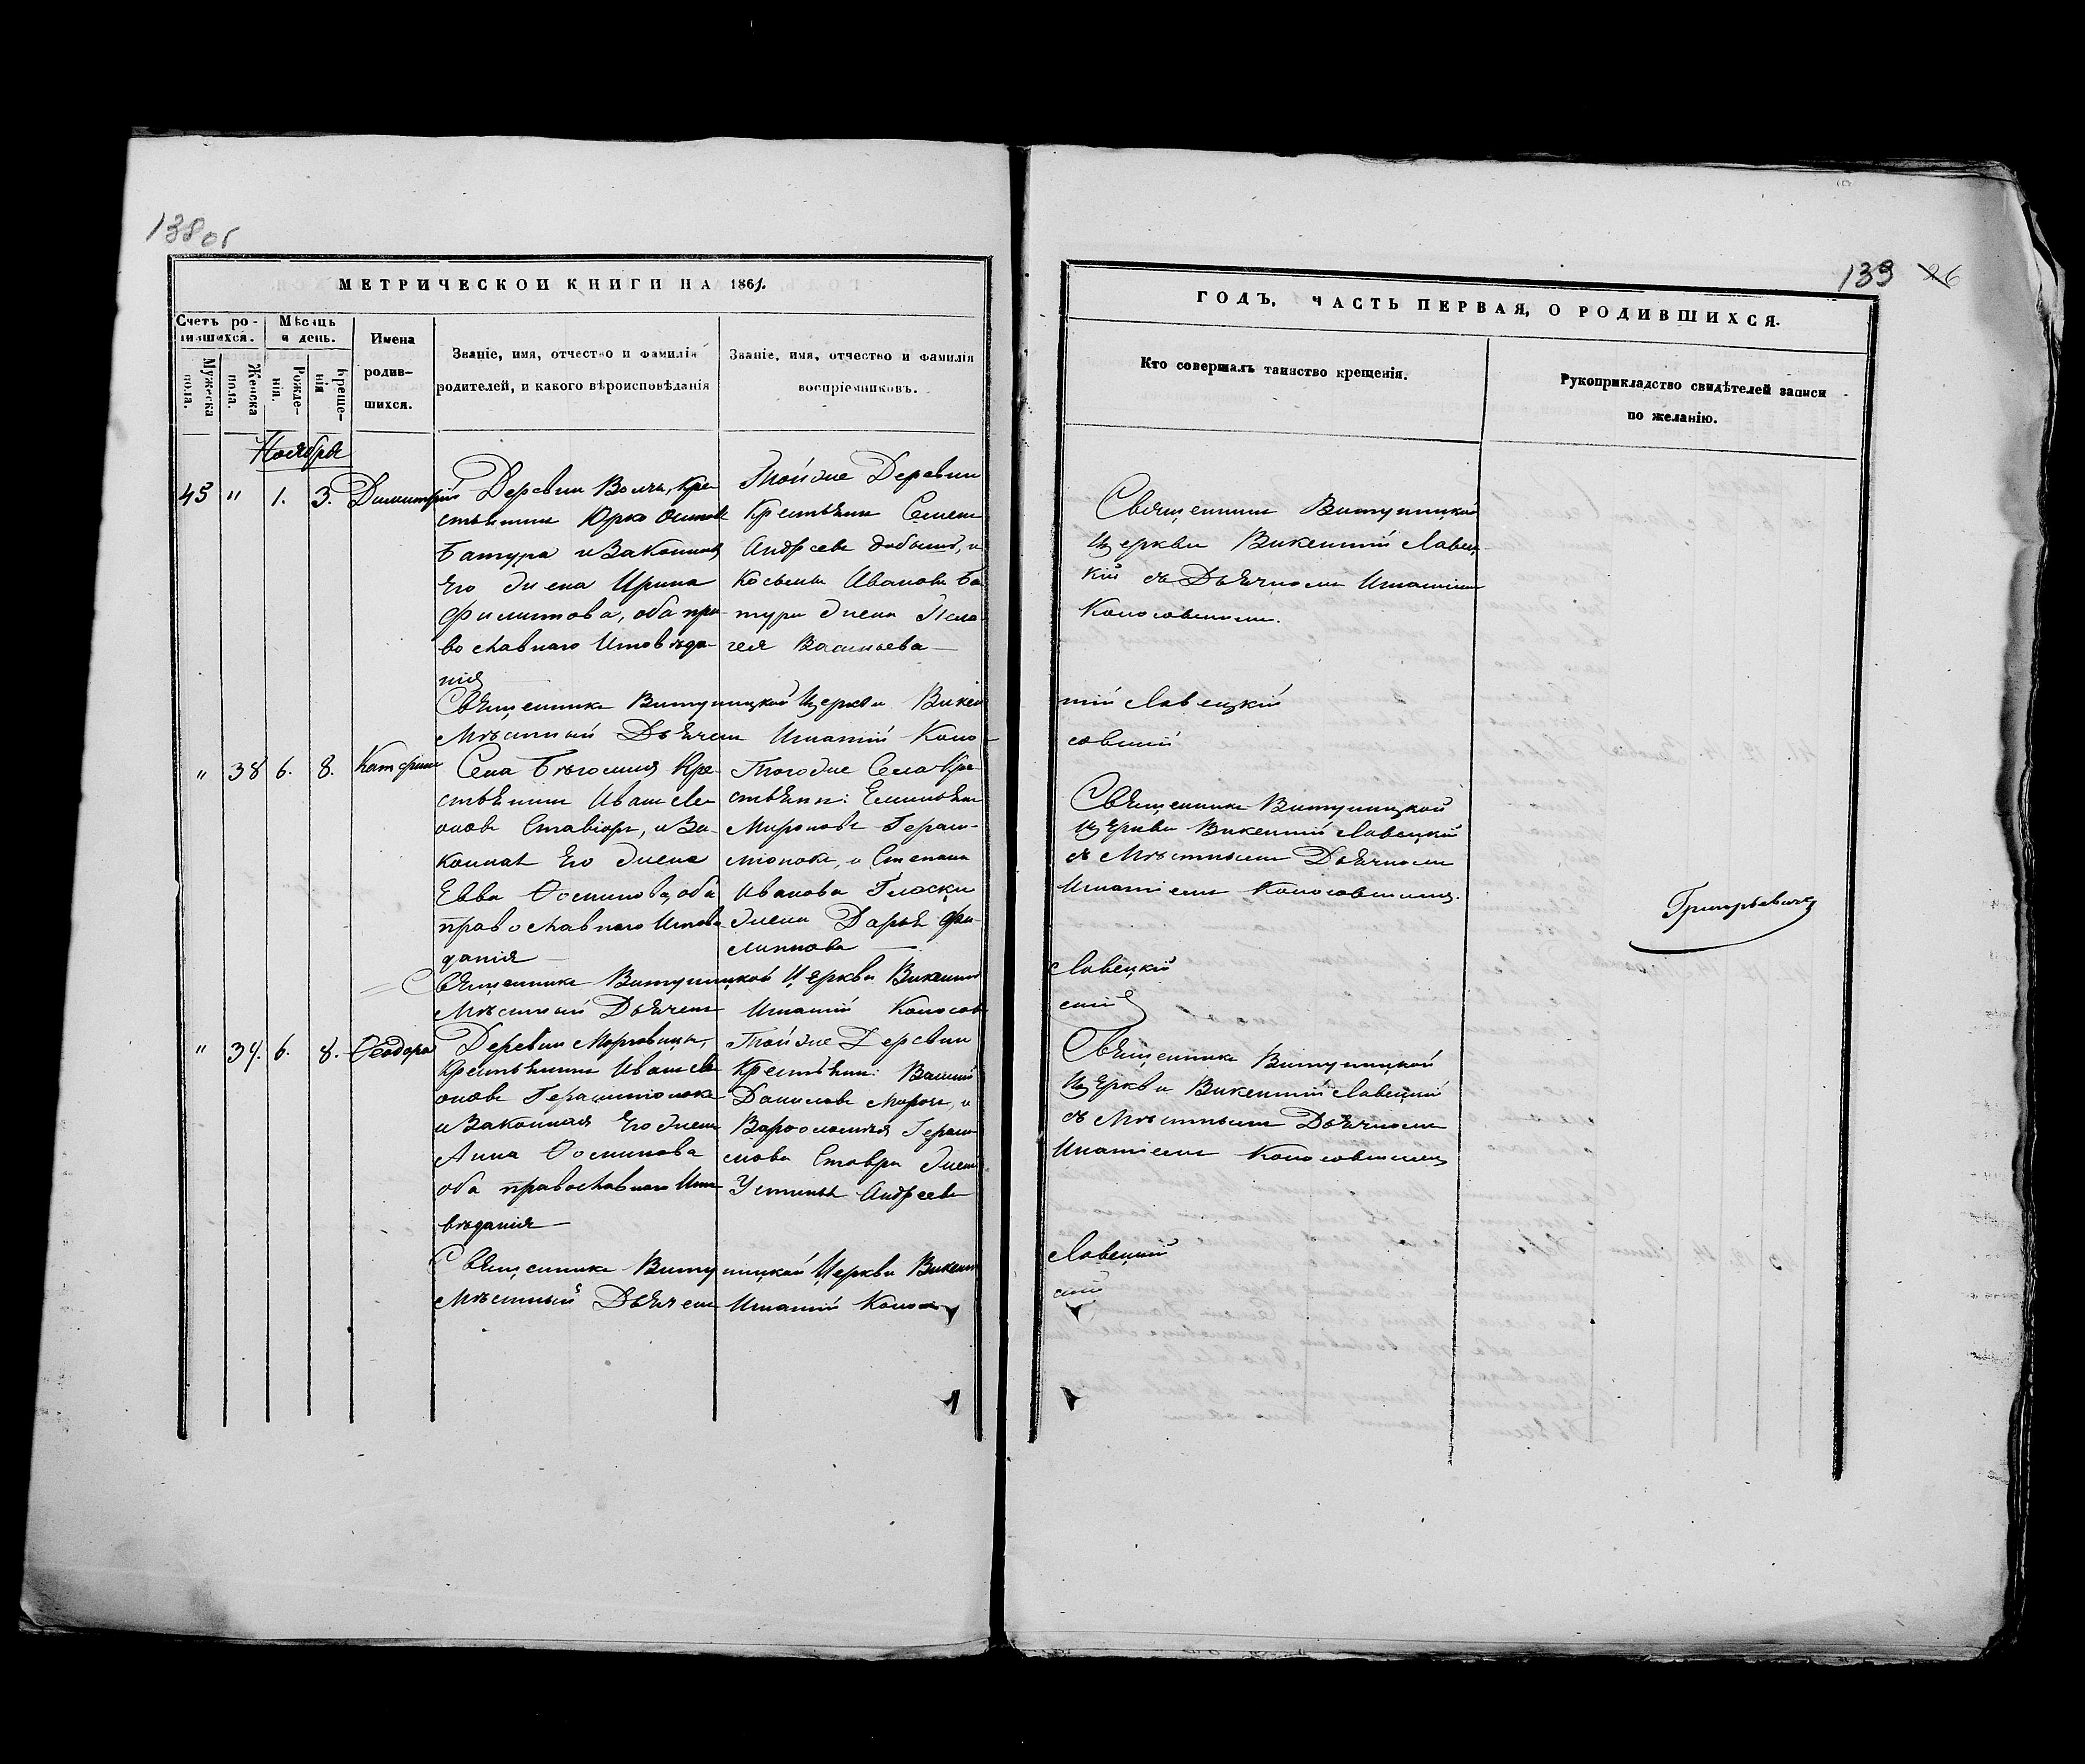 138об
МЕТРИЧЕСКОИ КНИГИ НА 1861.
Счетъ ро-
дившихся.
Мѣсяцъ
и день.
Мужеска
пола.
Женска
пола.
Рожде-
нія.
Креще-
нія
Имена
родив-
шихся.
Званіе, имя, отчество и фамилія
родителей, и какого вѣроисповѣданія
Званіе, имя, отчество и фамилія
воспріемниковъ.
Ноябрь
45 " 1. 3. Димитрій
Деревни Волчи, кре-
стьянинъ Юрко Осиповъ
Батура и Законная
Его жена Ирина
Филипова, оба пра-
вославнаго Исповѣда-
нія
Тойже Деревни
Крестьяне Семенъ
Андреевъ и
Косьмы Иванова Ба-
туры жена Пела-
гея Васильева
Священникъ Витуницкой Церкви Викен
Мѣстный Дьячекъ Игнатій Коло-
" 38 6. 8. Катерина
Села Бѣгомля Кре-
стьянинъ Иванъ Ле-
оновъ и За-
конная Его жена
Евва Осипова, оба
православнаго Исповѣ-
данія
Тогоже Села Кре-
стьяне: Емельянъ
Мироновъ Герасі-
міонокъ, и Степана
Иванова
жена Дарья Фи-
липпова
Священникъ Витуницкой Церкви Викентій
Мѣстный Дьячекъ Игнатій Колосов
" 39. 6. 8. Ѳеодора
Деревни
Крестьянинъ Иванъ Ле-
оновъ Герасиміонокъ
и Законная Его жена
Анна Осипова
оба православнаго Испо-
вѣданія
Тойже Деревни
Крестьяне: Василій
Даниловъ Марочъ, и
Варѳоломея Гераси-
мова Ставра жена
Устинья Андреева
Священникъ Витуницкой Церкви Викент
Мѣстный Дьячекъ Игнатій Колосов
139 26
ГОДЪ, ЧАСТЬ ПЕРВАЯ, О РОДИВШИХСЯ.
Кто совершалъ таинство крещенія.
Рукоприкладство свидѣтелей записи
по желанію.
Священникъ Витуницкой
Церкви Викентій Лавец-
кій съ Дьячкомъ Игнатіемъ
Колосовскимъ.
тій Лавецкій
совскій
Священникъ Витуницкой
Церкви Викентій Лавецкій
съ Мѣстнымъ Дьячкомъ
Игнатіемъ Колосовскимъ.
Григорьевичъ
Лавецкій
скій
Священникъ Витуницкой
Церкви Викентій Лавецкій
съ Мѣстнымъ Дьячкомъ
Игнатіемъ Колосовскимъ
Лавецкій
скій